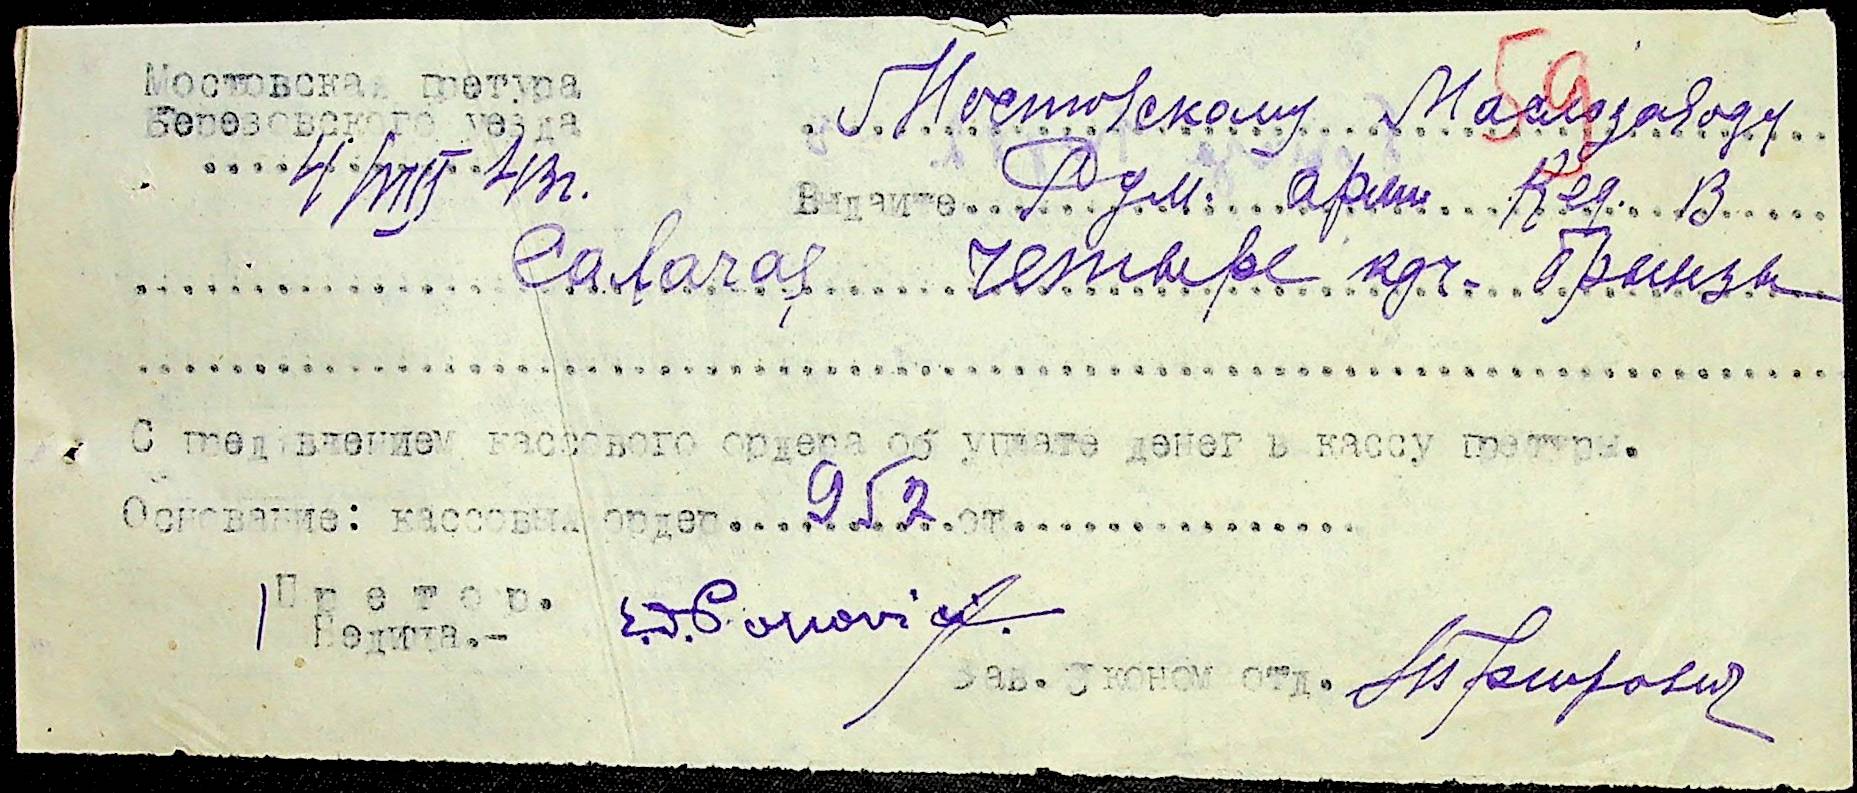 59
Мостовская претура
Березовского уезда
4/VIII 43 г.
Мостовскому Маслозаводу
Выдайте Рум. арм. В
четыре клг. Брынзы
С предявлением кассового ордера об уплате денег в кассу претуры.
Основание: кассовый ордер 952 от
Претор.
E.D. Popovici
Зав. Эконом отд.